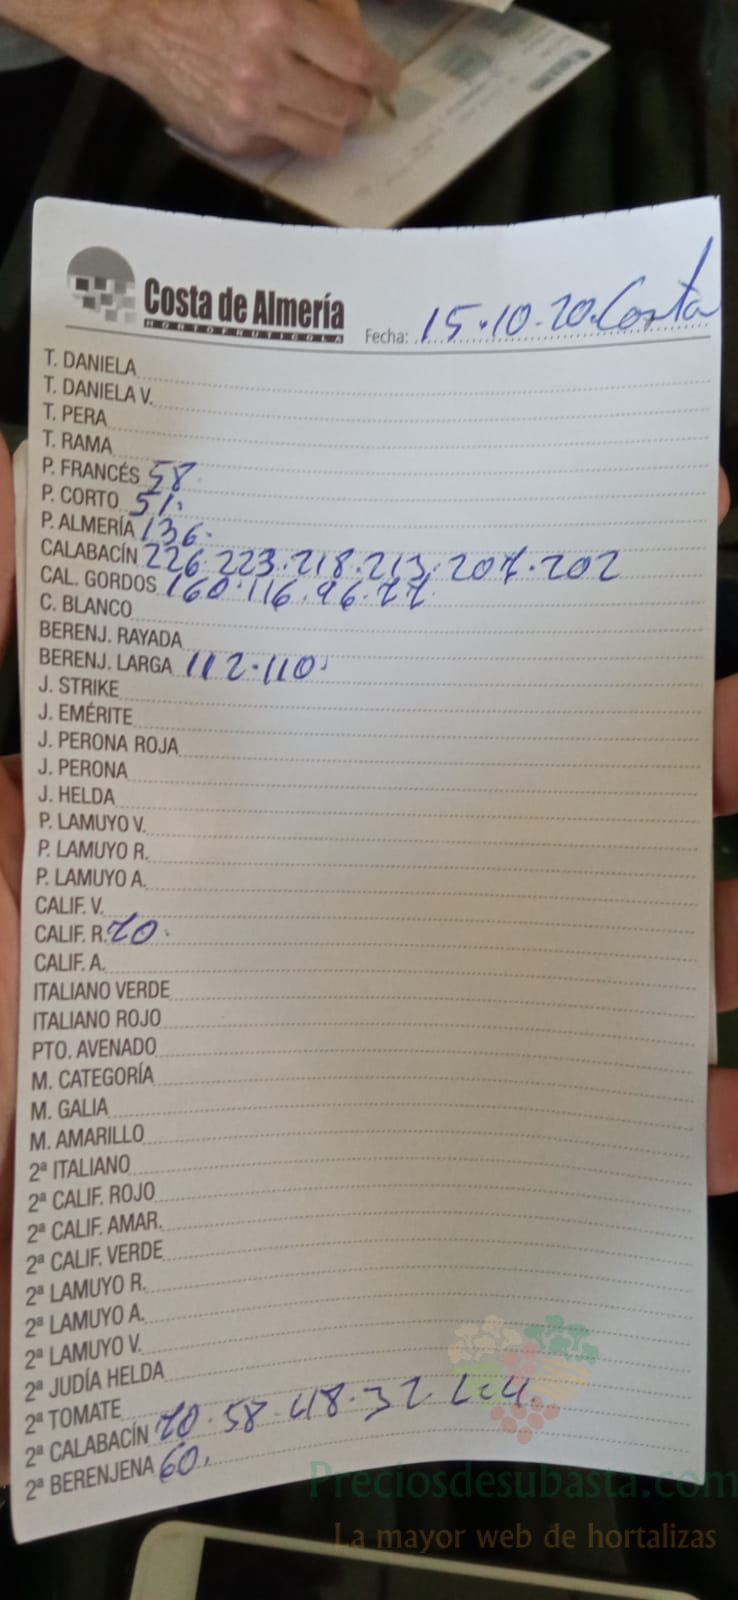 Costa de Almería
HORTOFRUTICOLA
Fecha: 15.10.20. Costa
T. DANIELA
T. DANIELA V.
T. PERA
T. RAMA
P. FRANCÉS 58
P. CORTO 51.
P. ALMERÍA 136.
CALABACÍN 226.223.218.213.207.202
CAL. GORDOS 160.116.96.77
C. BLANCO
BERENJ. RAYADA
BERENJ. LARGA 112.110.
J. STRIKE
J. EMÉRITE
J. PERONA ROJA
J. PERONA
J. HELDA
P. LAMUYO V.
P. LAMUYO R.
P. LAMUYO A.
CALIF. V.
CALIF. R. 70.
CALIF. A.
ITALIANO VERDE
ITALIANO ROJO
PTO. AVENADO
M. CATEGORÍA
M. GALIA
M. AMARILLO
2ª ITALIANO
2ª CALIF. ROJO
2ª CALIF. AMAR.
2ª CALIF. VERDE
2ª LAMUYO R.
2ª LAMUYO A.
2ª LAMUYO V.
2ª JUDÍA HELDA
2ª TOMATE
2ª CALABACÍN 70.58.48.32
2ª BERENJENA 60.
Preciosdesubasta.com
La mayor web de hortalizas